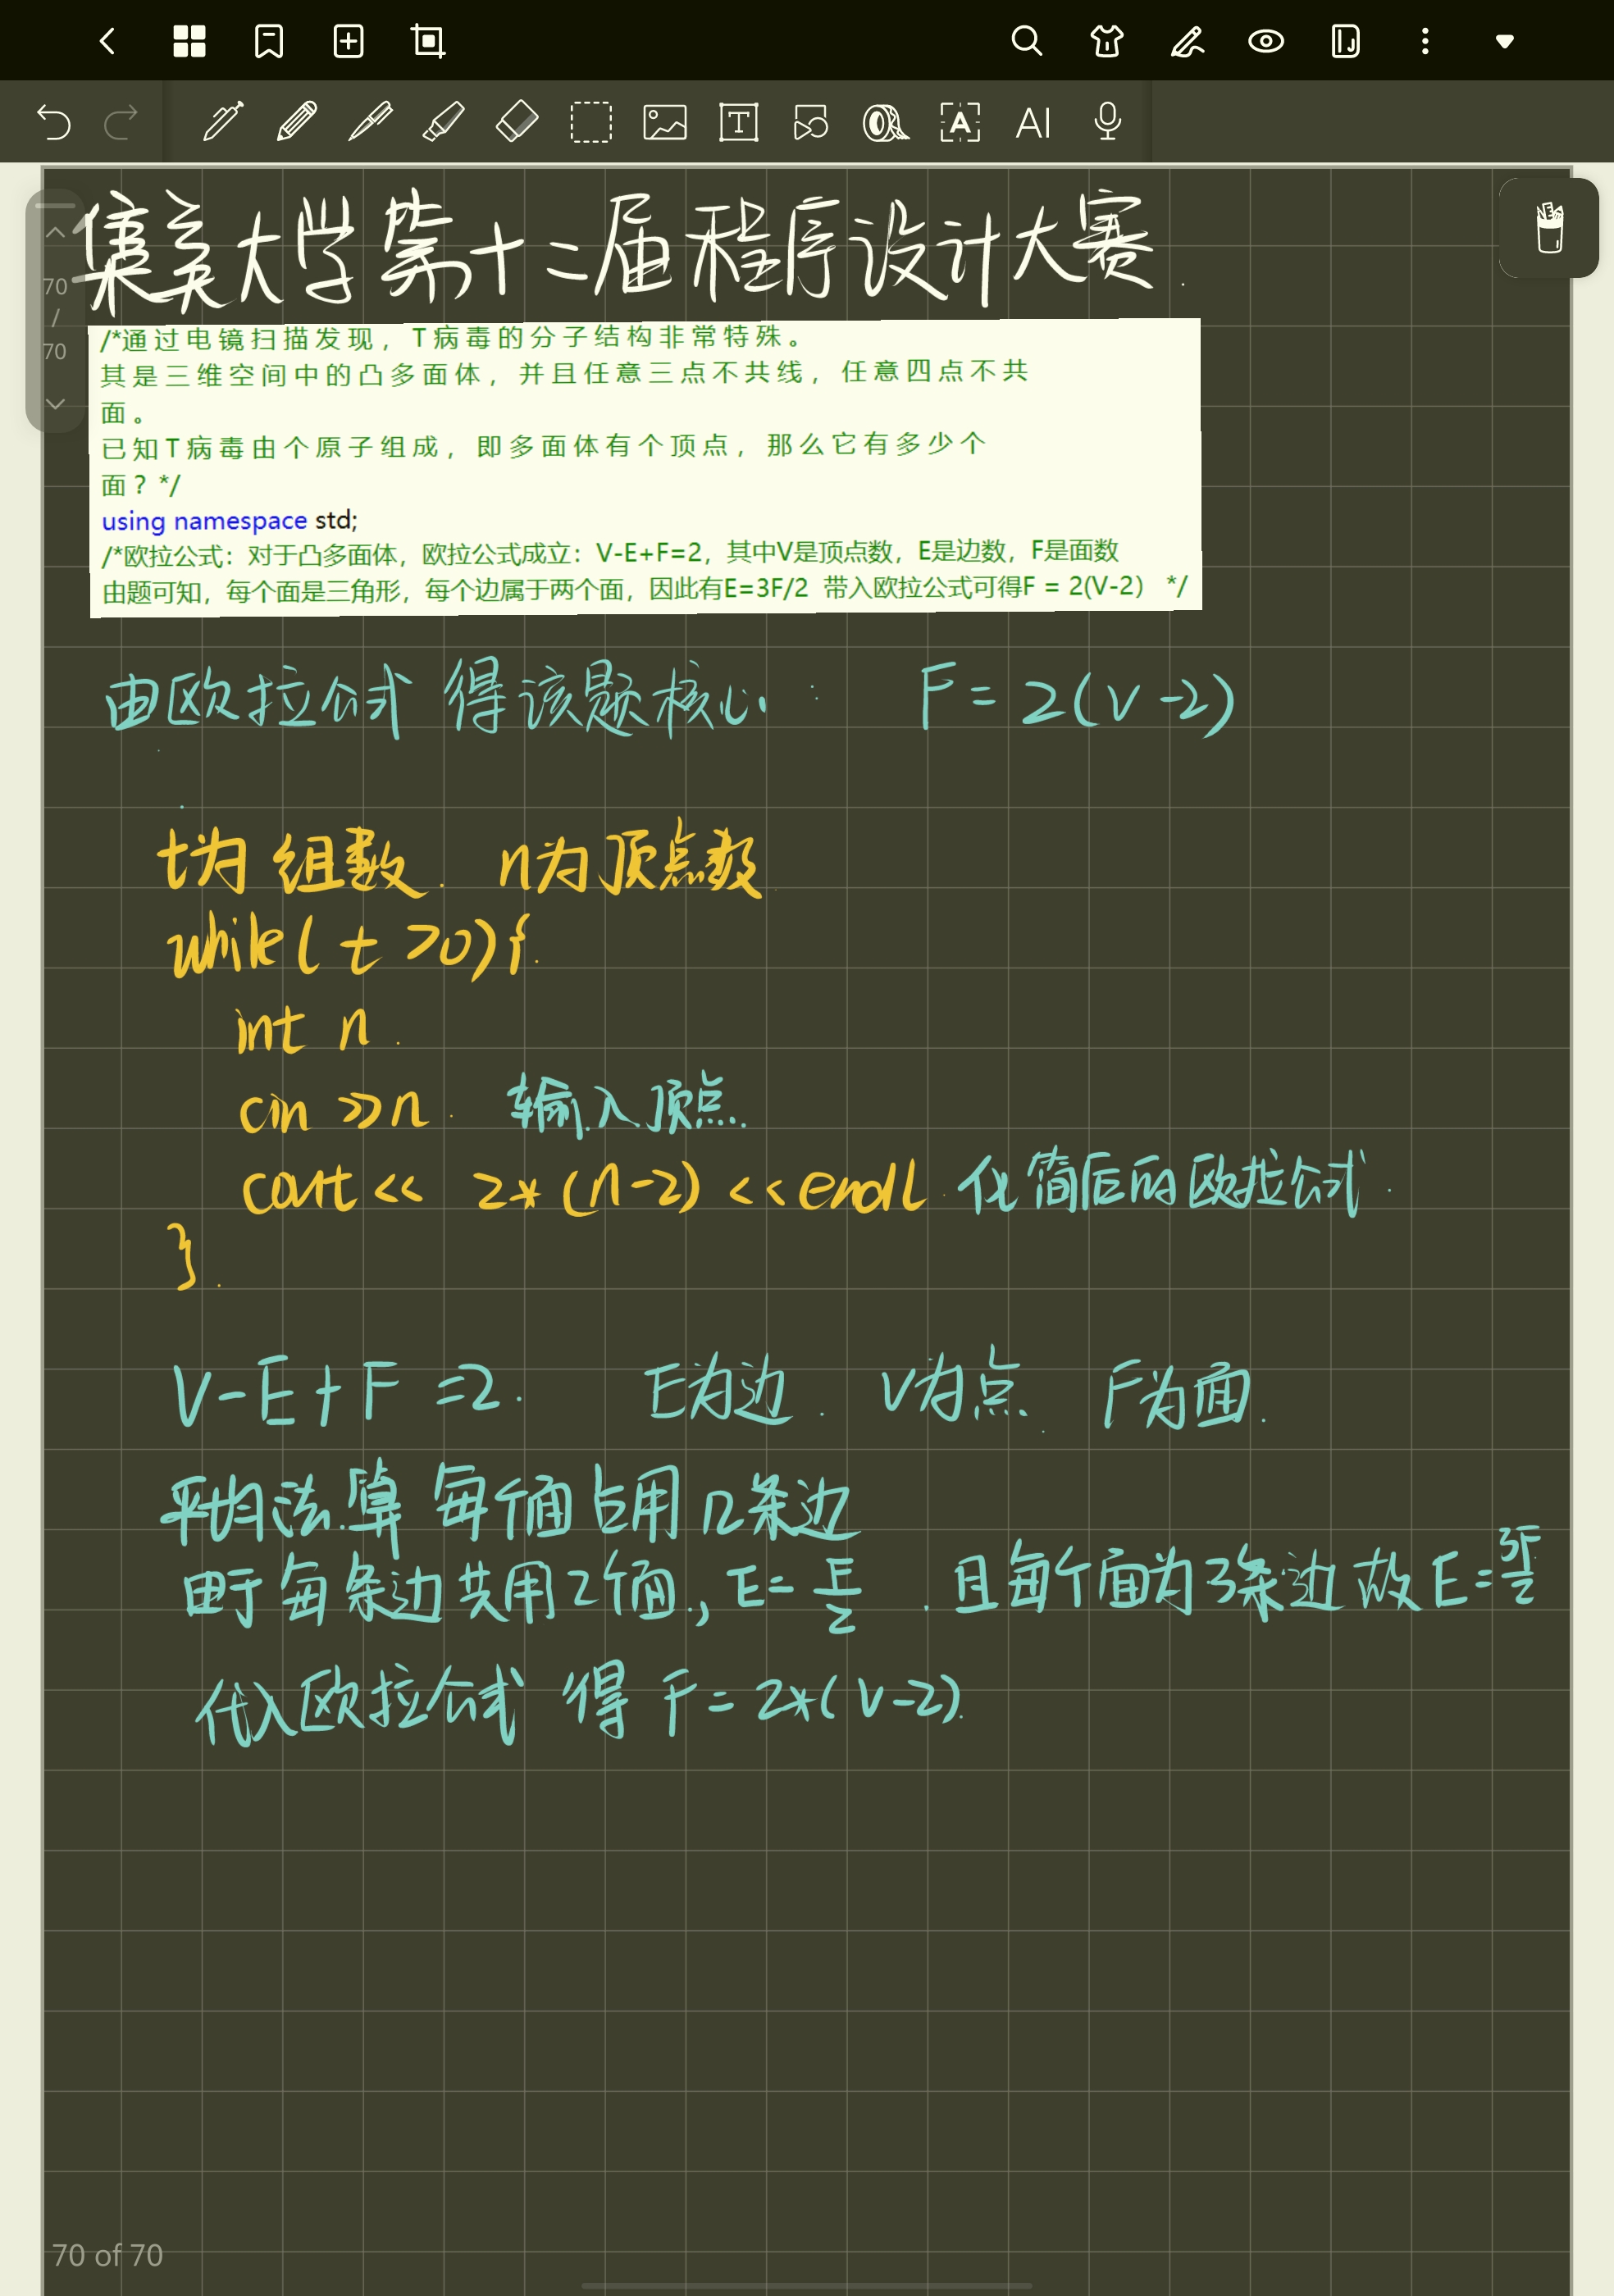 T
A
AI
70
/
70
集美大学第十二届程序设计大赛.
/*通过电镜扫描发现，T病毒的分子结构非常特殊。
其是三维空间中的凸多面体，并且任意三点不共线，任意四点不共
面。
已知T病毒由个原子组成，即多面体有个顶点，那么它有多少个
面？*/
using namespace std;
/*欧拉公式：对于凸多面体，欧拉公式成立：V-E+F=2，其中V是顶点数，E是边数，F是面数
由题可知，每个面是三角形，每个边属于两个面，因此有E=3F/2 带入欧拉公式可得F = 2(V-2） */
由欧拉公式 得该题核心： F = 2(V-2)
t为组数. n为顶点数.
while(t>0){.
int n.
cin >>n. 输入顶点.
cout << 2*(n-2) <<endl. 化简后的欧拉公式.
}.
V-E+F=2. E为边. V为点. F为面.
平均法.算 每个面占用 n条边
由于每条边共用2个面., E=F/2 . 且每个面为3条边 故E=3F/2
代入欧拉公式 得 F=2*(V-2).
70 of 70